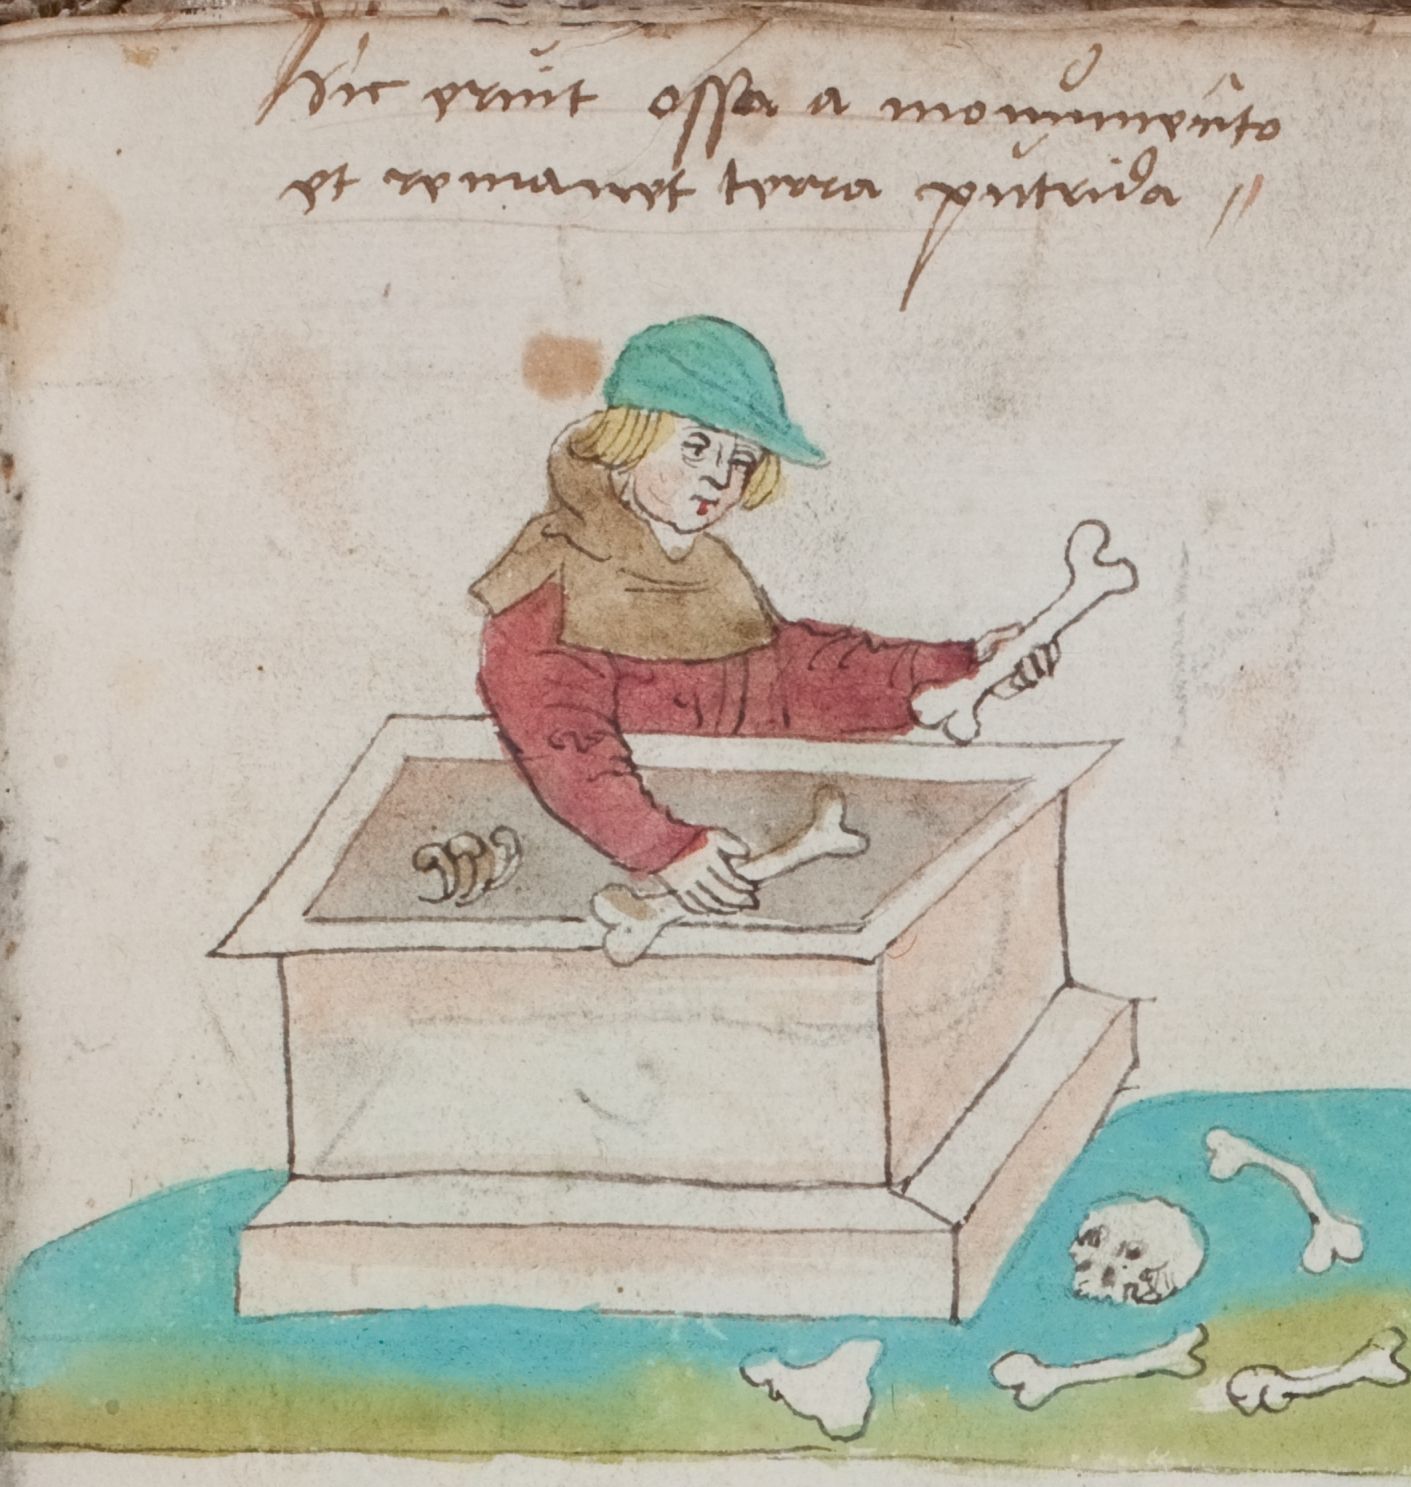 Hic eruit ossa a monumento
et remanet terra putrida //